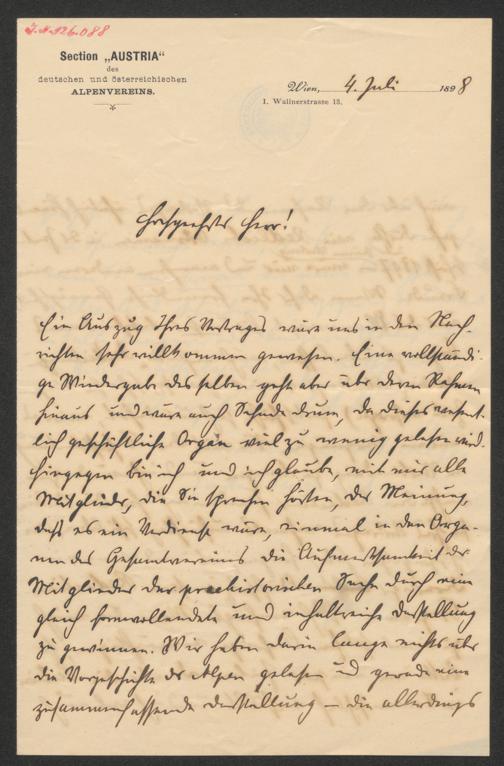 J.N. 126.088
Section „AUSTRIA"
des
deutschen und österreichischen
ALPENVEREINS.
Wien, 4. Juli 1898
I. Wallnerstrasse 13.
Hochgeehrter Herr!
Ein Auszug Ihres Vortrages wäre uns in den Nach-
richten sehr willkommen gewesen. Eine vollständi-
ge Wiedergabe desselben geht aber über deren Rahmen
hinaus und wäre auch Schade drum, da dieses wesent-
lich geschäftliche Organ viel zu wenig gelesen wird.
Hingegen bin ich und ich glaube, mit mir alle
Mitglieder, die Sie sprechen hörten, der Meinung,
daß es ein Verdienst wäre, einmal in den Orga-
nen des Gesamtvereins die Aufmerksamkeit der
Mitglieder der praehistorischen Sache durch eine
gleich formvollendete und inhaltreiche Darstellung
zu gewinnen. Wir haben darin lange nichts über
die Vorgeschichte der Alpen gelesen und gerade eine
zusammenfassende Darstellung – die allerdings